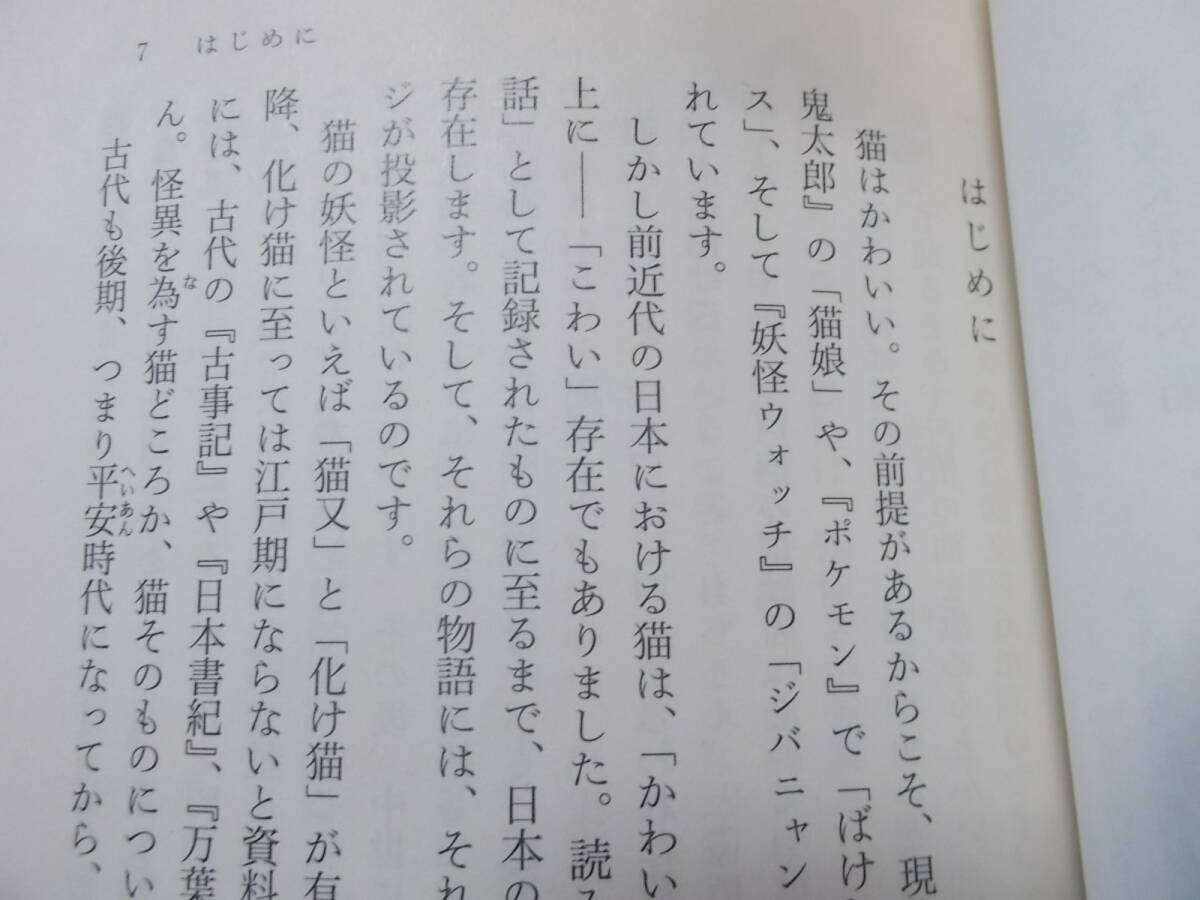 7 はじめに
はじめに
猫はかわいい。その前提があるからこそ、現
鬼太郎』の「猫娘」や、『ポケモン』で「ばけ
ス」、そして『妖怪ウォッチ』の「ジバニャン
れています。
しかし前近代の日本における猫は、「かわい
上に――「こわい」存在でもありました。読
話」として記録されたものに至るまで、日本の
存在します。そして、それらの物語には、それ
ジが投影されているのです。
猫の妖怪といえば「猫又」と「化け猫」が有
降、化け猫に至っては江戸期にならないと資料
には、古代の『古事記』や『日本書紀』、『万葉
ん。怪異を為す猫どころか、猫そのものについ
古代も後期、つまり平安時代になってから、